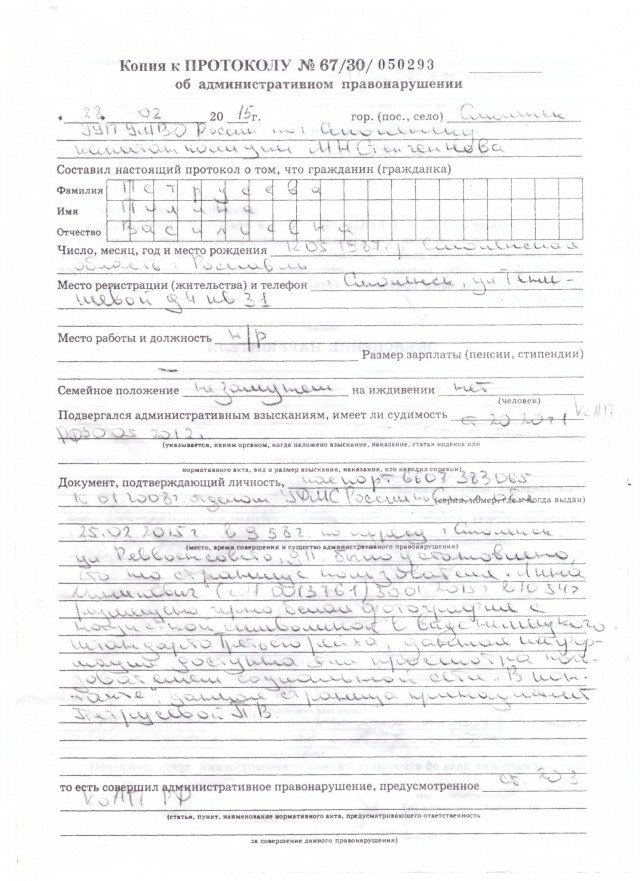 Копия к ПРОТОКОЛУ № 67/30/ 050293
об административном правонарушении
« 28 02 20 15 г. гор. (пос., село) Смоленск
УМВД России по г. Смоленску
капитан полиции М.Н.
Составил настоящий протокол о том, что гражданин (гражданка)
Фамилия Петрусева
Имя
Отчество
Число, месяц, год и место рождения 1987 г. Смоленская
область г. Рославль
Место регистрации (жительства) и телефон Смоленск, ул Тени-
шевой д 4 кв 31
Место работы и должность н/р
Размер зарплаты (пенсии, стипендии)
Семейное положение не замужем на иждивении нет
(человек)
Подвергался административным взысканиям, имеет ли судимость КоАП
2012г.
(указывается, каким органом, когда наложено взыскание, наказание, статья кодекса или
нормативного акта, вид и размер взыскания, наказания, кто наводил справки)
Документ, подтверждающий личность, паспорт 6607 383065
2008г отделом УФМС России по
(серия, номер, где и когда выдан)
25.02 2015г в 9 58г по адресу г Смоленск
(место, время совершения и существо административного правонарушения)
ул Реввоенсовета, было установлено,
что на странице пользователя "Анна
2015г в 10 54г
размещена черно белая фотография с
нацисткой символикой в виде немецкого
штандарта Третьего рейха, данная инфор-
мация доступна для просмотра поль-
зователем социальной сети "В кон-
такте", данная страница принадлежит
Петрусевой П.В.
то есть совершил административное правонарушение, предусмотренное ст. 20 3
КоАП РФ
(статья, пункт, наименование нормативного акта, предусматривающего ответственность
за совершение данного правонарушения)